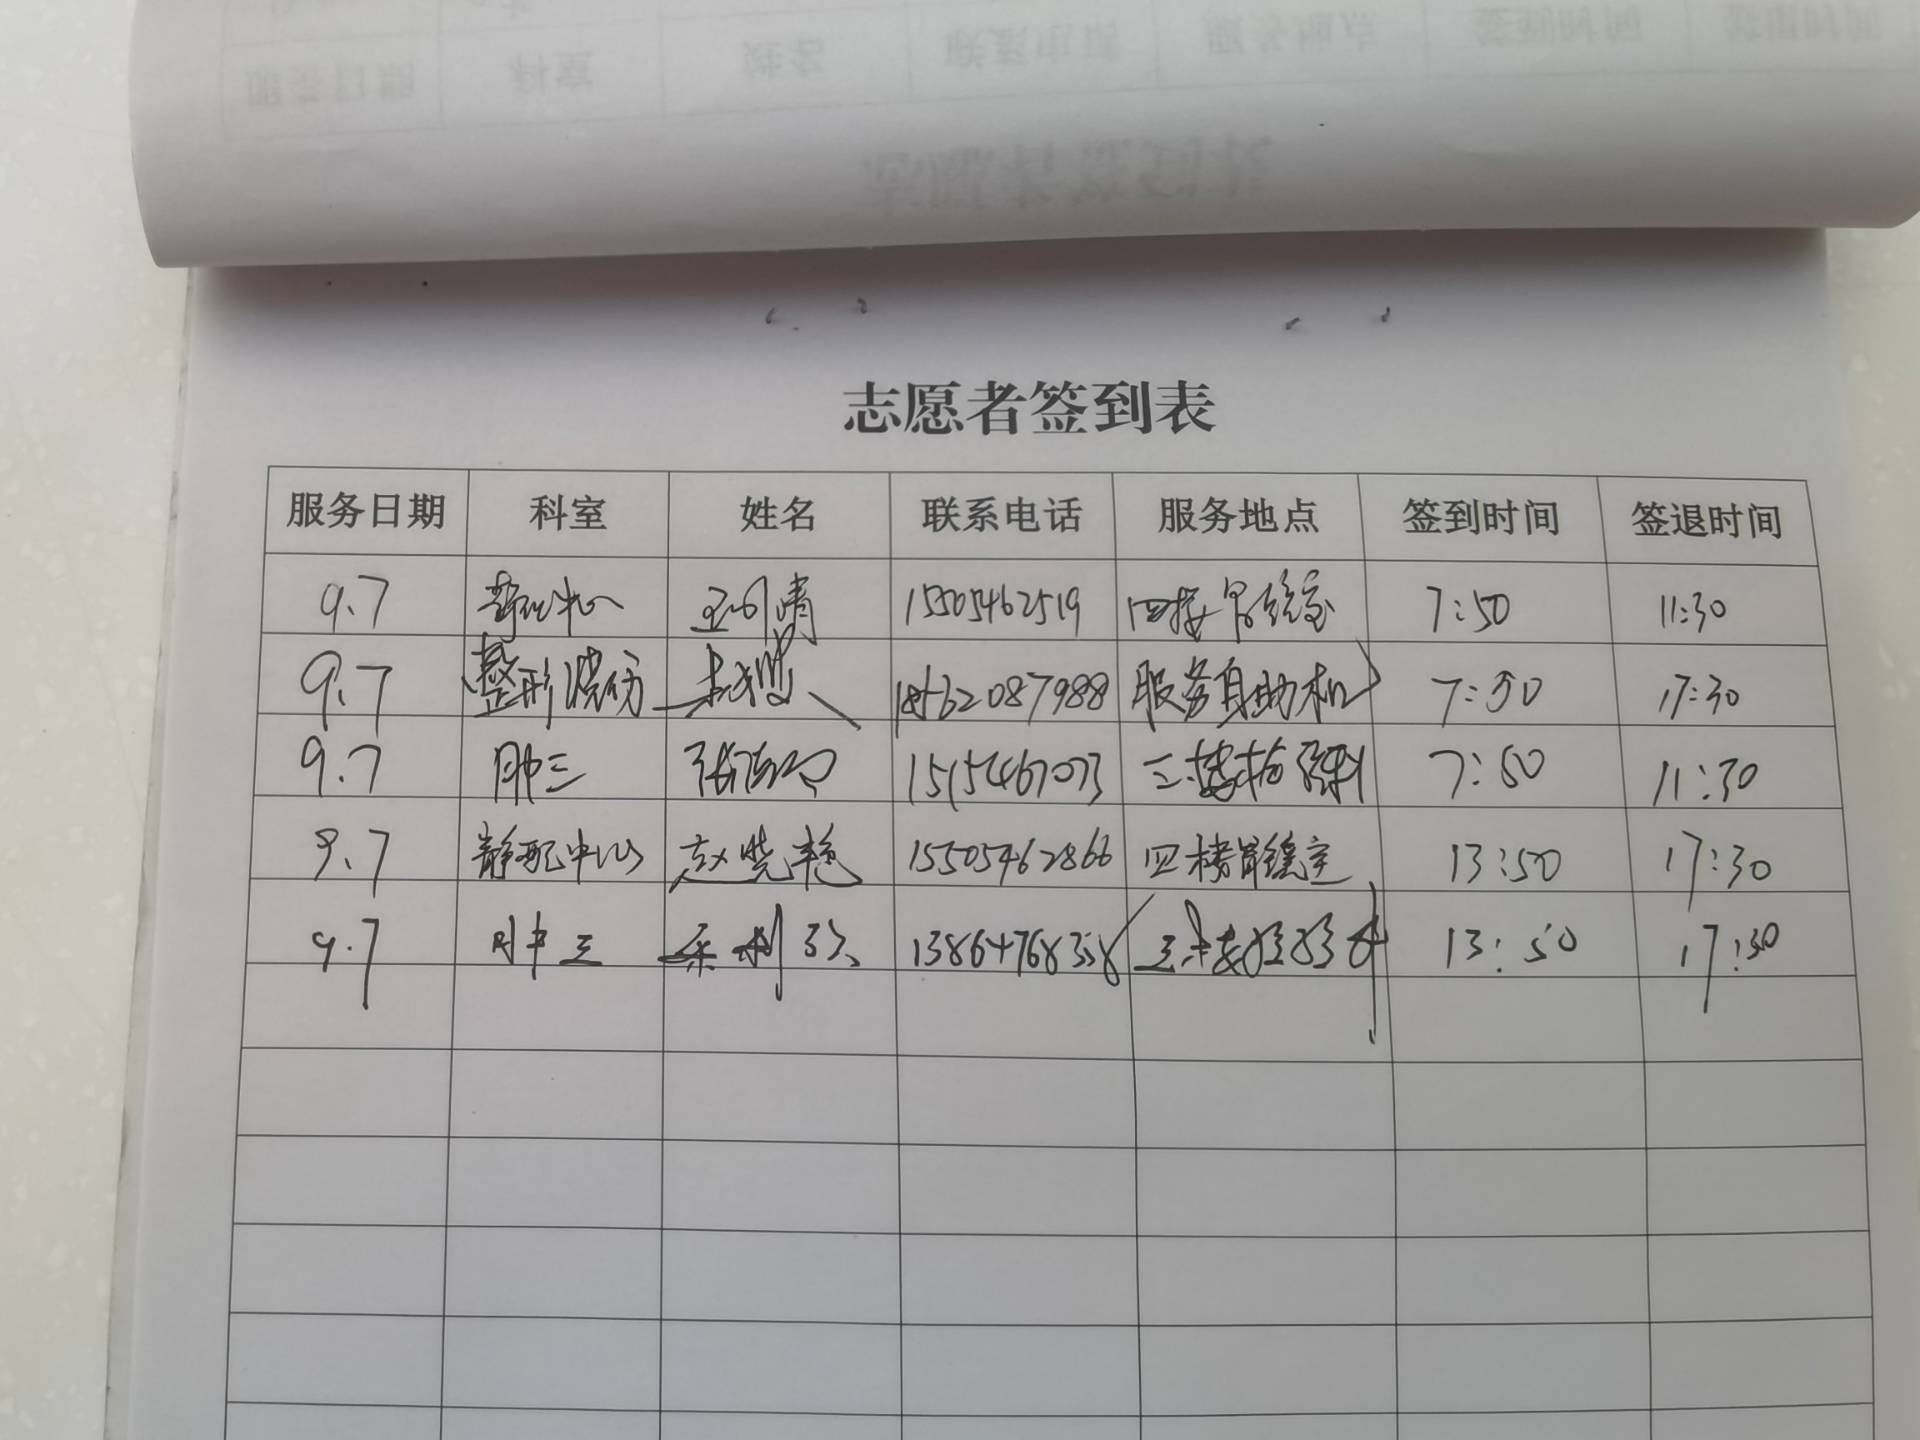 志愿者签到表
服务日期 科室 姓名 联系电话 服务地点 签到时间 签退时间
9.7 静配中心 15505462519 四楼胃镜室 7:50 11:30
9.7 整形烧伤 18562087988 服务自助机 7:50 17:30
9.7 肿三 1515467073 三楼 7:50 11:30
9.7 静配中心 赵晓艳 15505462866 四楼胃镜室 13:50 17:30
9.7 肿三 三楼 13:50 17:30